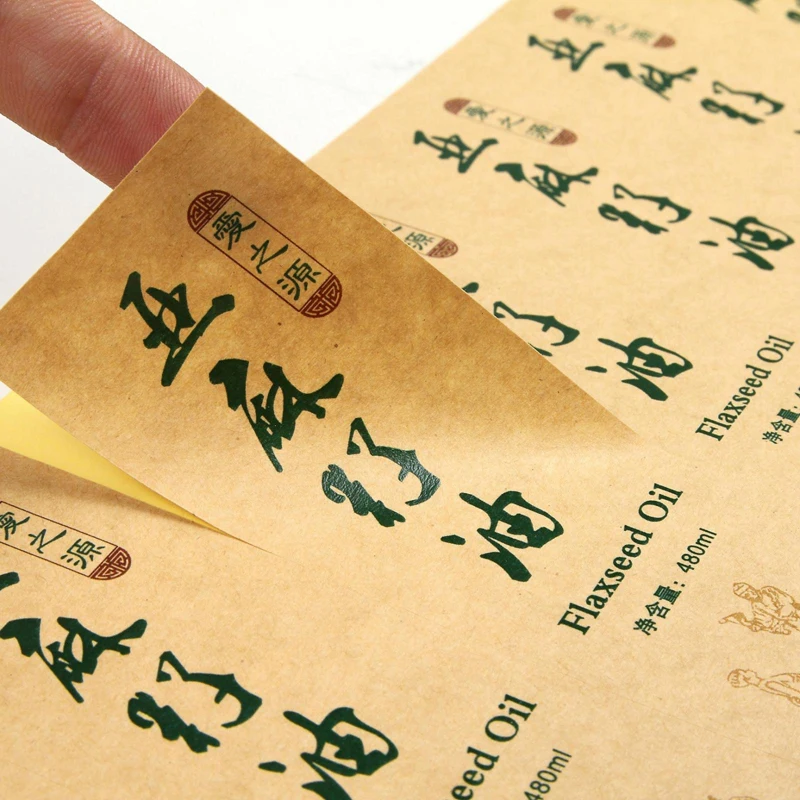 愛之源
亚麻籽
愛之源
亚麻籽油
源
籽油
Flaxseed Oil
净含量:
愛之源
亚麻籽油
Flaxseed Oil
净含量: 480ml
愛之源
麻籽油
eed Oil
480ml